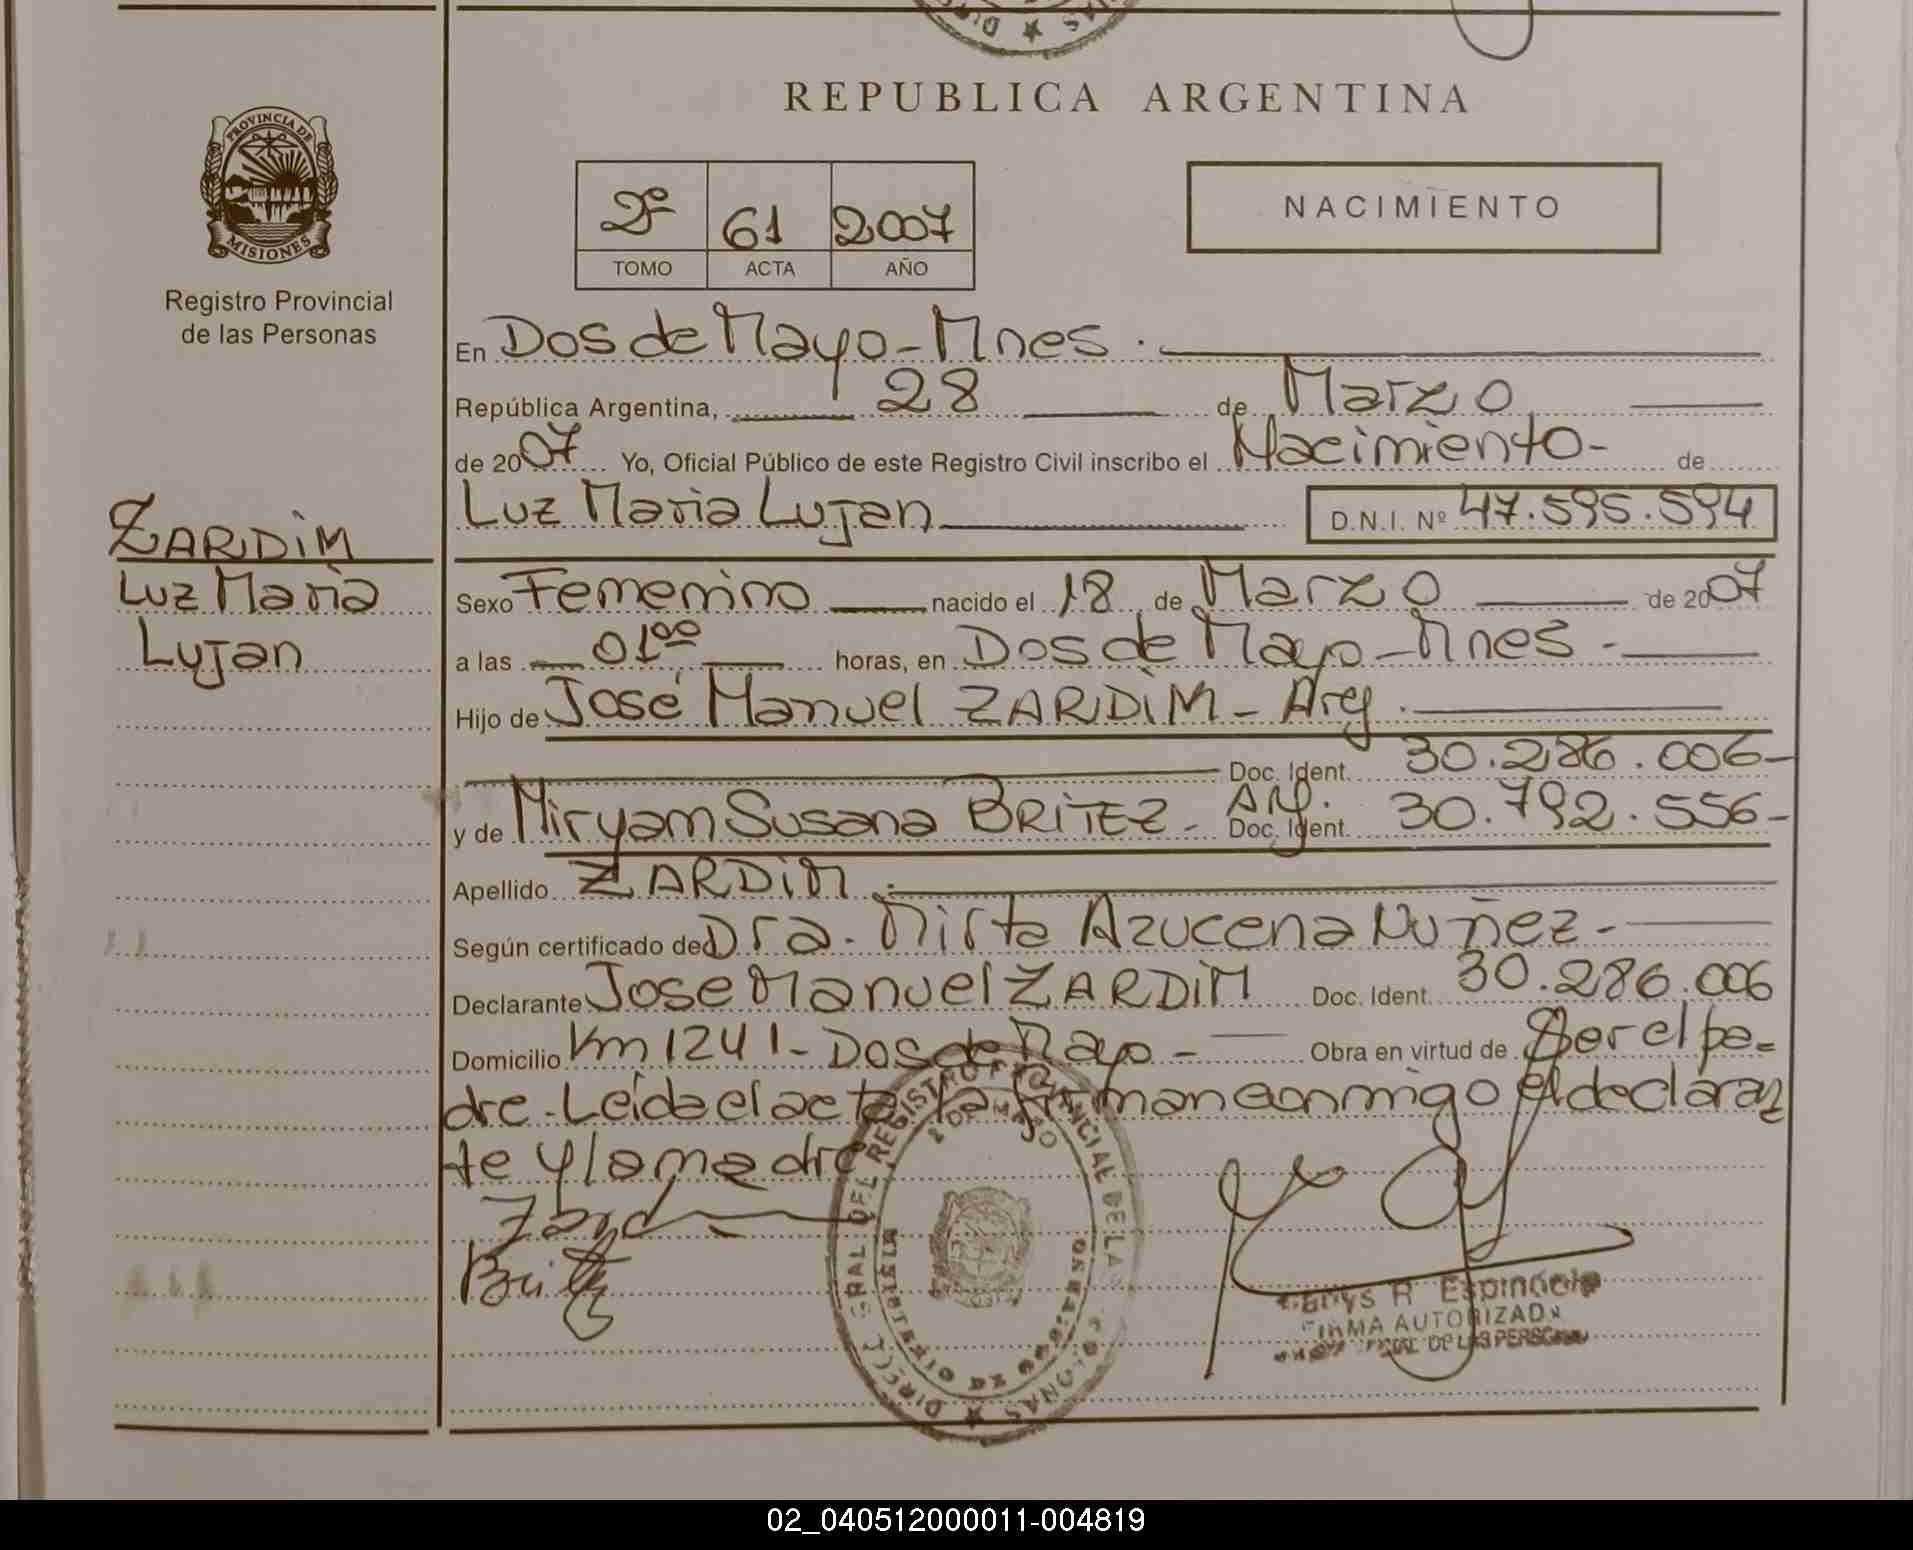 REPUBLICA ARGENTINA
PROVINCIA DE
MISIONES
Registro Provincial
de las Personas
2º 61 2007
TOMO ACTA AÑO
NACIMIENTO
En Dos de Mayo - Mnes.
República Argentina, 28 de Marzo
de 2007 Yo, Oficial Público de este Registro Civil inscribo el Nacimiento - de
Luz Maria Lujan D.N.I. Nº 47.595.594
ZARDIM
Luz Maria
Lujan
Sexo Femenino nacido el 18 de Marzo de 2007
a las 01⁰⁰ horas, en Dos de Mayo - Mnes -
Hijo de José Manuel ZARDIM - Arg.
Doc. Ident. 30.286.006-
y de Miryam Susana BRITEZ - Arg. Doc. Ident. 30.792.556-
Apellido ZARDIM.
Según certificado de Dra. Mirta Azucena Nuñez -
Declarante Jose Manuel ZARDIM Doc. Ident. 30.286.006
Domicilio Km 1241 - Dos de Mayo - Obra en virtud de Ser el pa-
dre. Leida el acta la firman conmigo el declaran
te y la madre
R Espindola
FIRMA AUTORIZADA
DE LAS PERSONAS
02_040512000011-004819